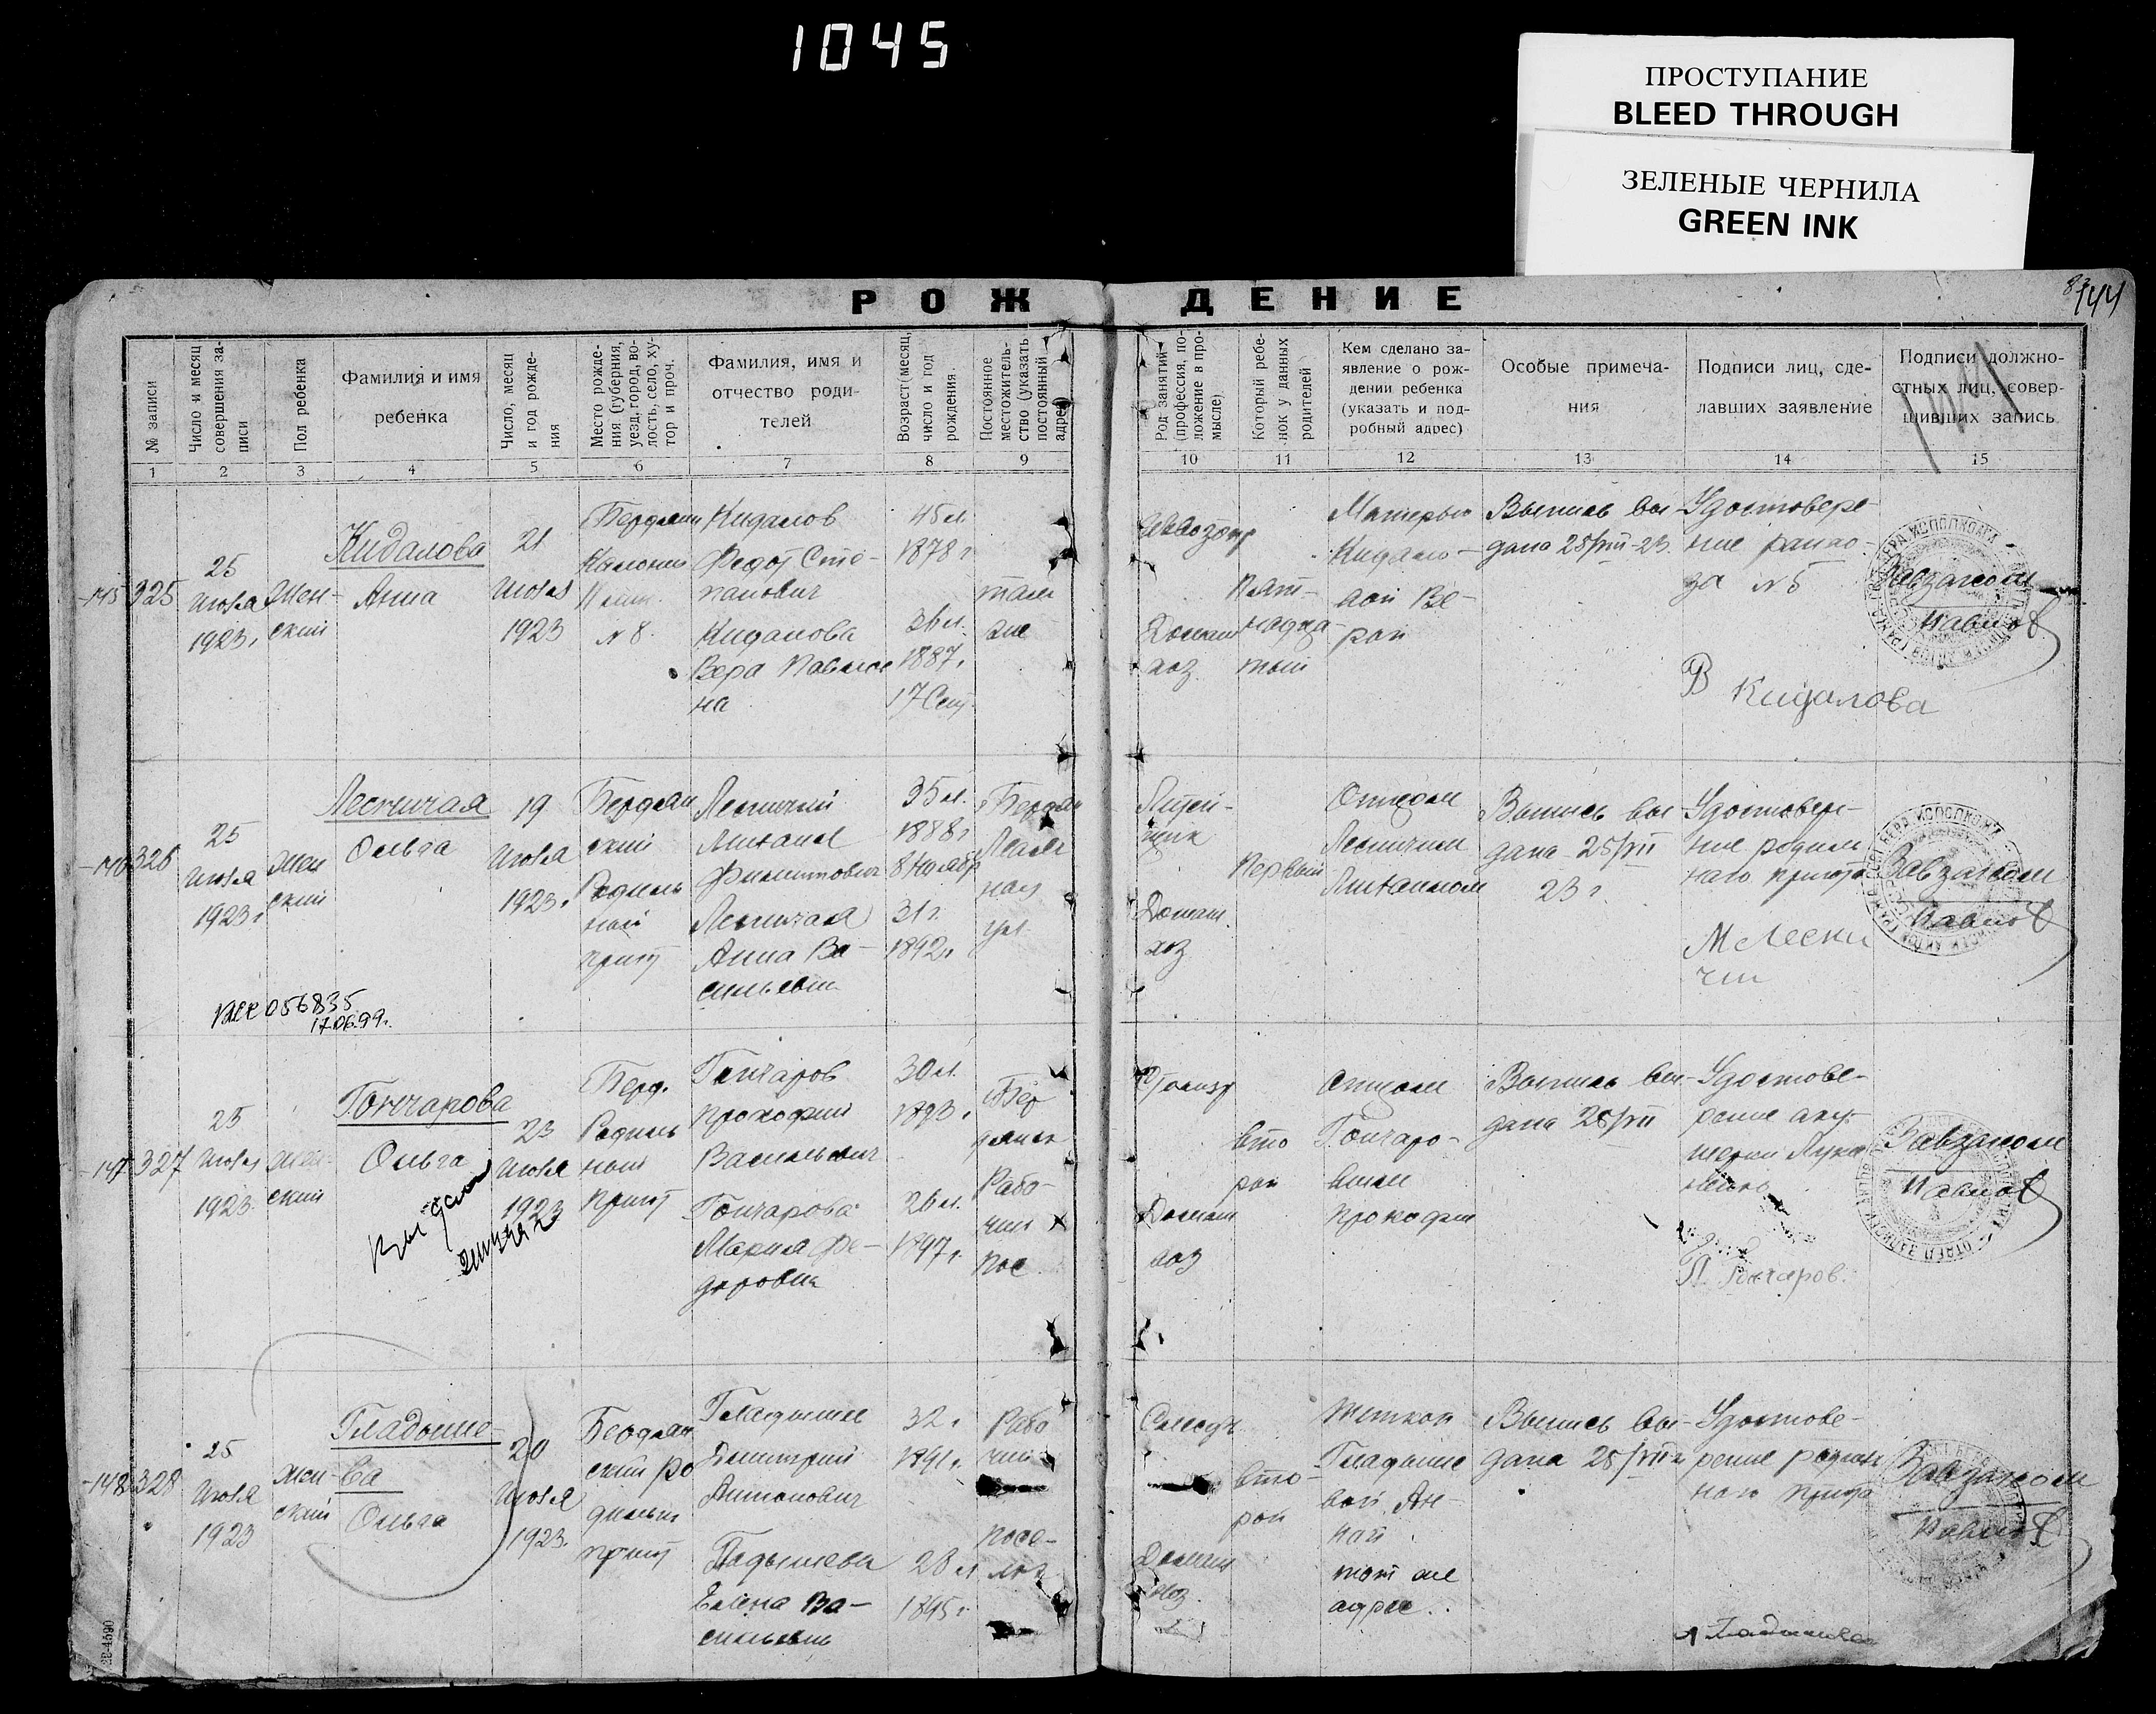 1045
ПРОСТУПАНИЕ
BLEED THROUGH
ЗЕЛЕНЫЕ ЧЕРНИЛА
GREEN INK
144
РОЖДЕНИЕ
№ записи
Число и месяц
совершения за-
писи
Пол ребенка
Фамилия и имя
ребенка
Число, месяц
и год рожде-
ния
Место рожде-
ния (губерния,
уезд, город, во-
лость, село, ху-
тор и проч.
Фамилия, имя и
отчество роди-
телей
Возраст (месяц,
число и год
рождения.
Постоянное
местожитель-
ство (указать
постоянный
адрес)
Род занятий
(профессия, по-
ложение в про-
мысле)
Который ребе-
нок у данных
родителей
Кем сделано за-
явление о рож-
дении ребенка
(указать и под-
робный адрес)
Особые примеча-
ния
Подписи лиц, сде-
лавших заявление
Подписи должно-
стных лиц, совер-
шивших запись
1 2 3 4 5 6 7 8 9 10 11 12 13 14 15
145
325
25
июля
1923г
Жен-
ский
Кидалова
Анна
21
июля
1923
Бердянс
Колония
№ 8.
Кидалов
Федот Сте-
панович
Кидалова
Вера Павлов
на
45 л.
1878 г
36 л.
1887г
17 Сент
там
же
Домаш
хоз.
Пят-
надца-
тый
Матерью
Кидало-
вой Ве-
рой
Выпись вы-
дана 25/VII-23.
Удостовере-
ние
за № 5
В Кидалова
Завзагсом
Павлов
146
326
25
июля
1923г
Жен
ский
Лесничая
Ольга
19
июля
1923г
Бердян
ский
Родиль
ный
приют
Лесничий
Михаил
Филиппович
Лесничая
Анна Ва-
сильевн
35 л.
1888г
8 Ноябр
31 г.
1892г
Бердян
Литей-
щик
Домаш.
хоз
Первый
Отцом
Лесничим
Михаилом
Выпись вы
дана 25/VII
23 г.
Удостовер-
ние родиль
наго приюта
М Лесни
чи
Завзагсом
Павлов
056835
17.06.99г.
147
327
25
июля
1923
Жен-
ский
Гончарова
Ольга
23
июля
1923
Берд.
Родиль
ный
приют
Гончаров
Прокофий
Васильевич
Гончарова
Мария Фе-
доровна
30 л.
1893г
26 л.
1897г
Бер
дянск
Рабо-
чий
пос
Домаш
хоз
Вто
рой
Отцом
Гончаро-
вым
Прокофи
Выпись вы-
дана 25/VII
Удостове-
рение аку-
шерки
П. Гончаров.
Завзагсом
Павлов
148
328
25
июля
1923
Жен
ский
Гладыше-
ва
Ольга
20
июля
1923г
Бердян
ский ро
дильн
приют
Гладышев
Дмитрий
Антонович
Гладышева
Елена Ва-
сильевн
32 г
1891г
28 л
1895г
Рабо
чий
посе-
лок
Слесарь
Домаш
хоз.
Вто-
рой
Теткой
Гладыше
вой Ан-
ной
тот же
адрес.
Выпись вы-
дана 25/VII г
Удостове-
рение родиль
наго приюта
Завзагсом
Павлов